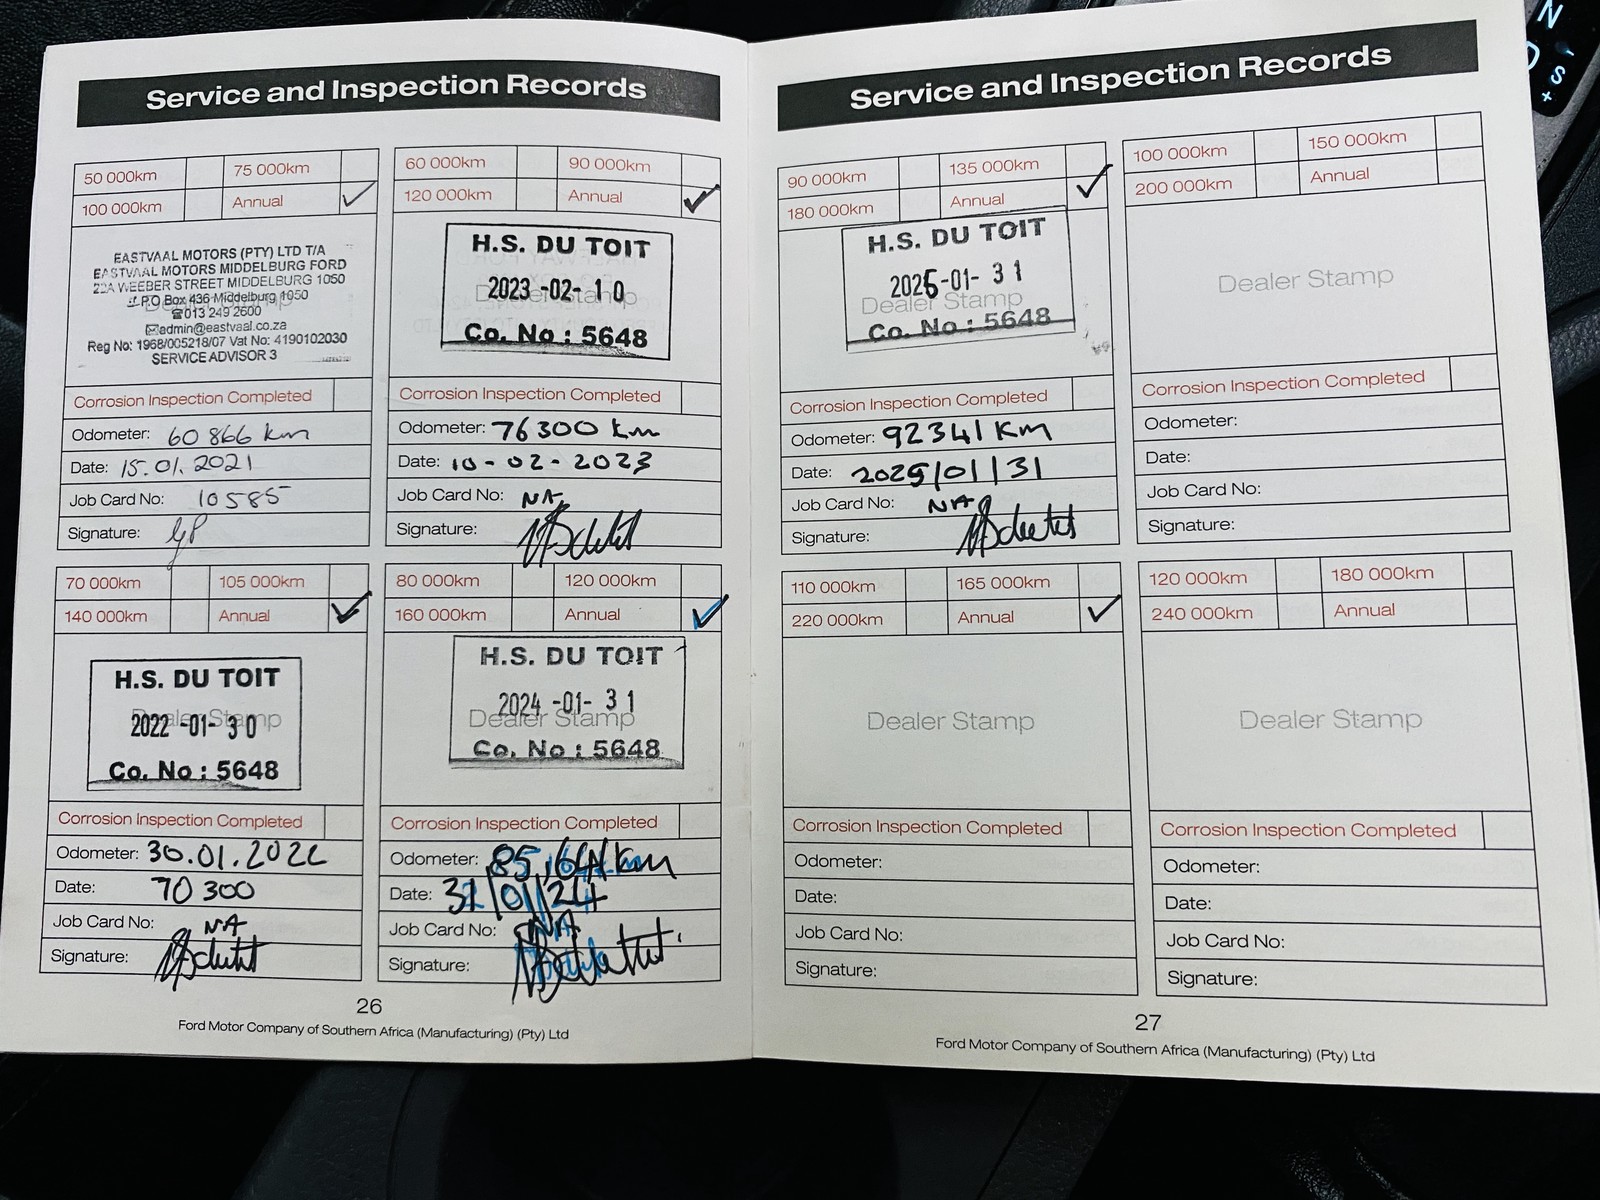 Service and Inspection Records
50 000km 75 000km
100 000km Annual
EASTVAAL MOTORS (PTY) LTD T/A
EASTVAAL MOTORS MIDDELBURG FORD
22A WEEBER STREET MIDDELBURG 1050
P.O Box 436 Middelburg 1050
013 249 2600
admin@eastvaal.co.za
Reg No: 1968/005218/07 Vat No: 4190102030
SERVICE ADVISOR 3
Corrosion Inspection Completed
Odometer: 60 866 km
Date: 15.01.2021
Job Card No: 10585
Signature:
60 000km 90 000km
120 000km Annual
H.S. DU TOIT
2023 -02- 10
Dealer Stamp
Co. No : 5648
Corrosion Inspection Completed
Odometer: 76 300 km
Date: 10-02-2023
Job Card No: NA
Signature:
70 000km 105 000km
140 000km Annual
H.S. DU TOIT
2022 -01- 30
Dealer Stamp
Co. No : 5648
Corrosion Inspection Completed
Odometer: 30.01.2022
Date: 70 300
Job Card No: NA
Signature:
80 000km 120 000km
160 000km Annual
H.S. DU TOIT
2024 -01- 31
Dealer Stamp
Co. No : 5648
Corrosion Inspection Completed
Odometer: 85,641 km
Date: 31/01/24
Job Card No: NA
Signature:
26
Ford Motor Company of Southern Africa (Manufacturing) (Pty) Ltd
Service and Inspection Records
90 000km 135 000km
180 000km Annual
H.S. DU TOIT
2025-01- 31
Dealer Stamp
Co. No : 5648
Corrosion Inspection Completed
Odometer: 92341 KM
Date: 2025/01/31
Job Card No: NA
Signature:
100 000km 150 000km
200 000km Annual
Dealer Stamp
Corrosion Inspection Completed
Odometer:
Date:
Job Card No:
Signature:
110 000km 165 000km
220 000km Annual
Dealer Stamp
Corrosion Inspection Completed
Odometer:
Date:
Job Card No:
Signature:
120 000km 180 000km
240 000km Annual
Dealer Stamp
Corrosion Inspection Completed
Odometer:
Date:
Job Card No:
Signature:
27
Ford Motor Company of Southern Africa (Manufacturing) (Pty) Ltd
N
D
S
+